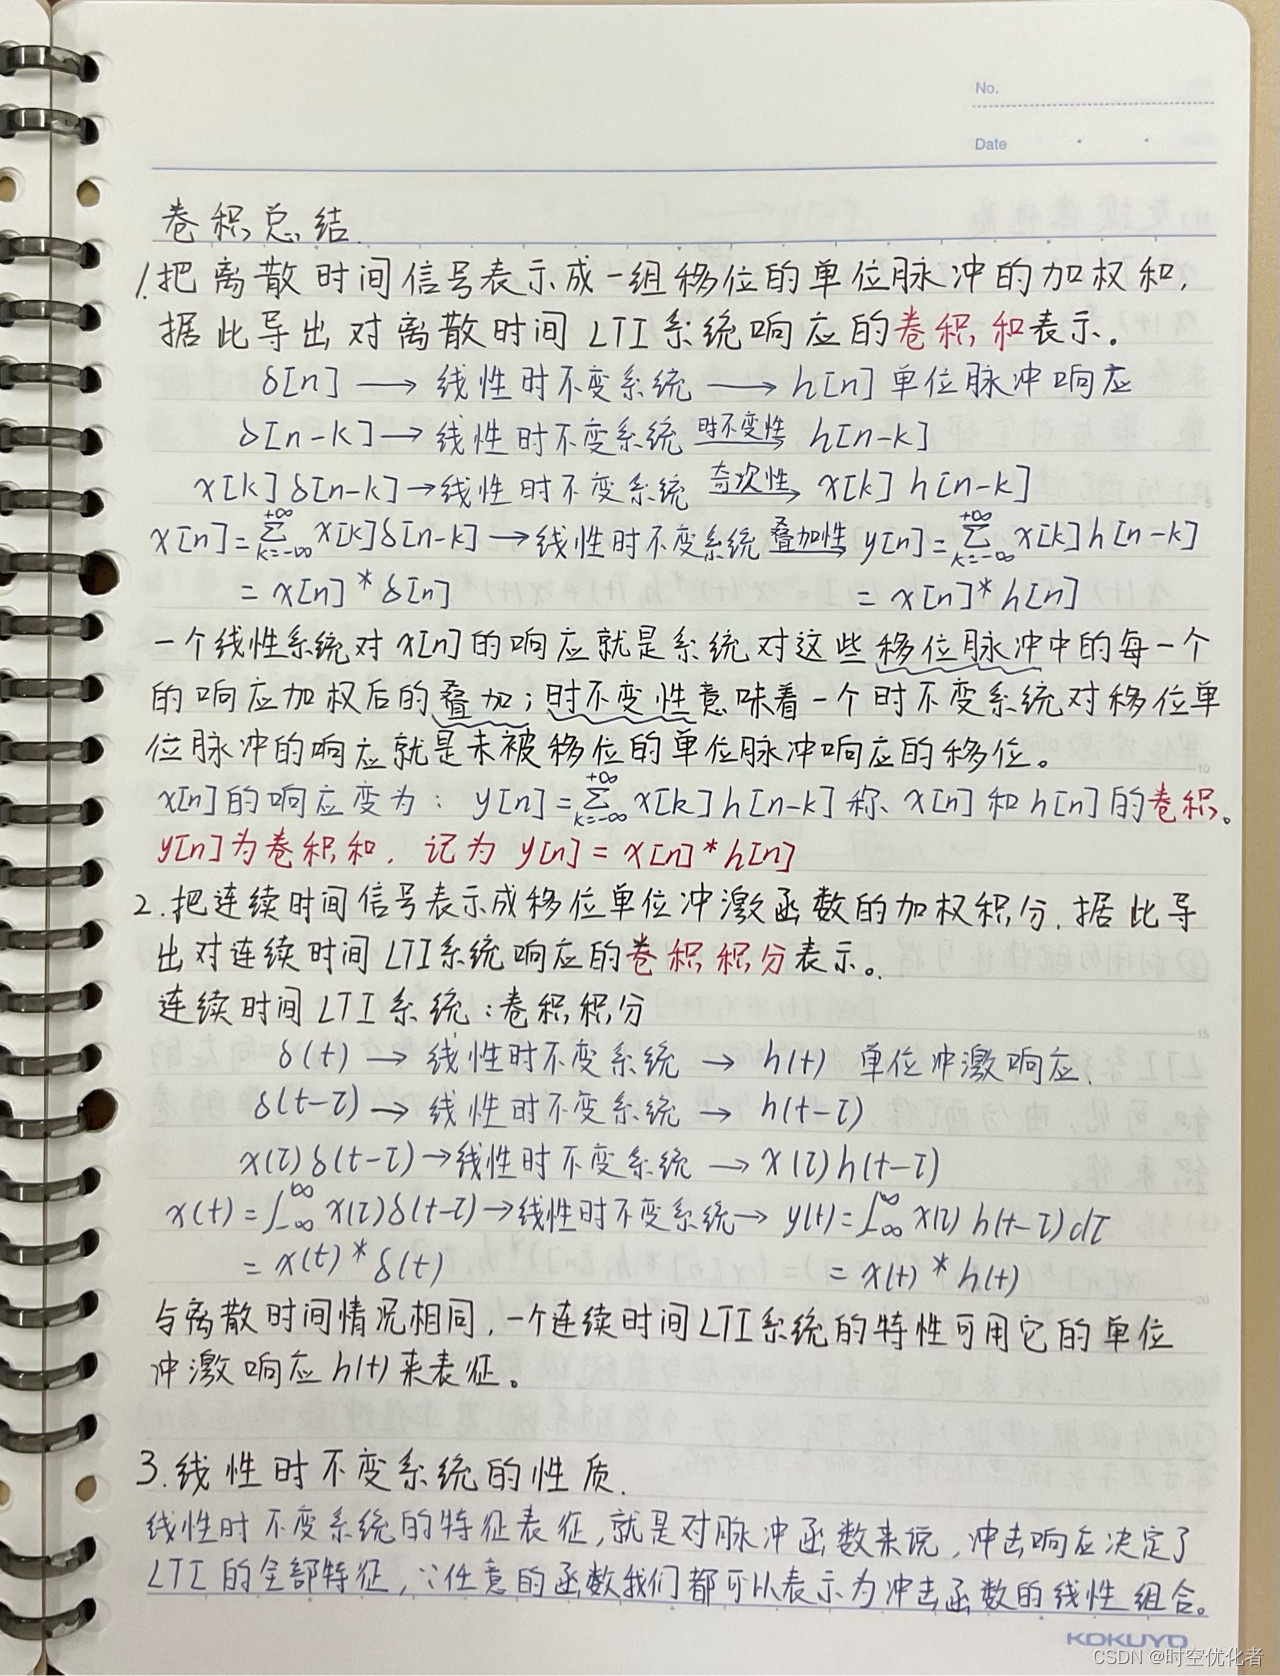 No.
Date
卷积总结
1.把离散时间信号表示成一组移位的单位脉冲的加权和,
据此导出对离散时间LTI系统响应的卷积和表示。
δ[n] → 线性时不变系统 → h[n] 单位脉冲响应
δ[n-k] → 线性时不变系统 时不变性→ h[n-k]
x[k]δ[n-k] → 线性时不变系统 奇次性→ x[k]h[n-k]
x[n]=∑_{k=-∞}^{+∞} x[k]δ[n-k] → 线性时不变系统 叠加性→ y[n]=∑_{k=-∞}^{+∞} x[k]h[n-k]
= x[n]*δ[n] = x[n]*h[n]
一个线性系统对x[n]的响应就是系统对这些移位脉冲中的每一个
的响应加权后的叠加;时不变性意味着一个时不变系统对移位单
位脉冲的响应就是未被移位的单位脉冲响应的移位。
x[n]的响应变为: y[n]=∑_{k=-∞}^{+∞} x[k]h[n-k] 称 x[n]和h[n]的卷积。
y[n]为卷积和, 记为 y[n]=x[n]*h[n]
2.把连续时间信号表示成移位单位冲激函数的加权积分,据此导
出对连续时间LTI系统响应的卷积积分表示。
连续时间LTI系统:卷积积分
δ(t) → 线性时不变系统 → h(t) 单位冲激响应.
δ(t-τ) → 线性时不变系统 → h(t-τ)
x(τ)δ(t-τ) → 线性时不变系统 → x(τ)h(t-τ)
x(t)=∫_{-∞}^{∞} x(τ)δ(t-τ) → 线性时不变系统 → y(t)=∫_{-∞}^{∞} x(τ)h(t-τ)dτ
= x(t)*δ(t) = x(t)*h(t)
与离散时间情况相同,一个连续时间LTI系统的特性可用它的单位
冲激响应h(t)来表征。
3.线性时不变系统的性质.
线性时不变系统的特征表征,就是对脉冲函数来说,冲击响应决定了
LTI的全部特征,∵任意的函数我们都可以表示为冲击函数的线性组合。
KOKUYO
CSDN @时空优化者